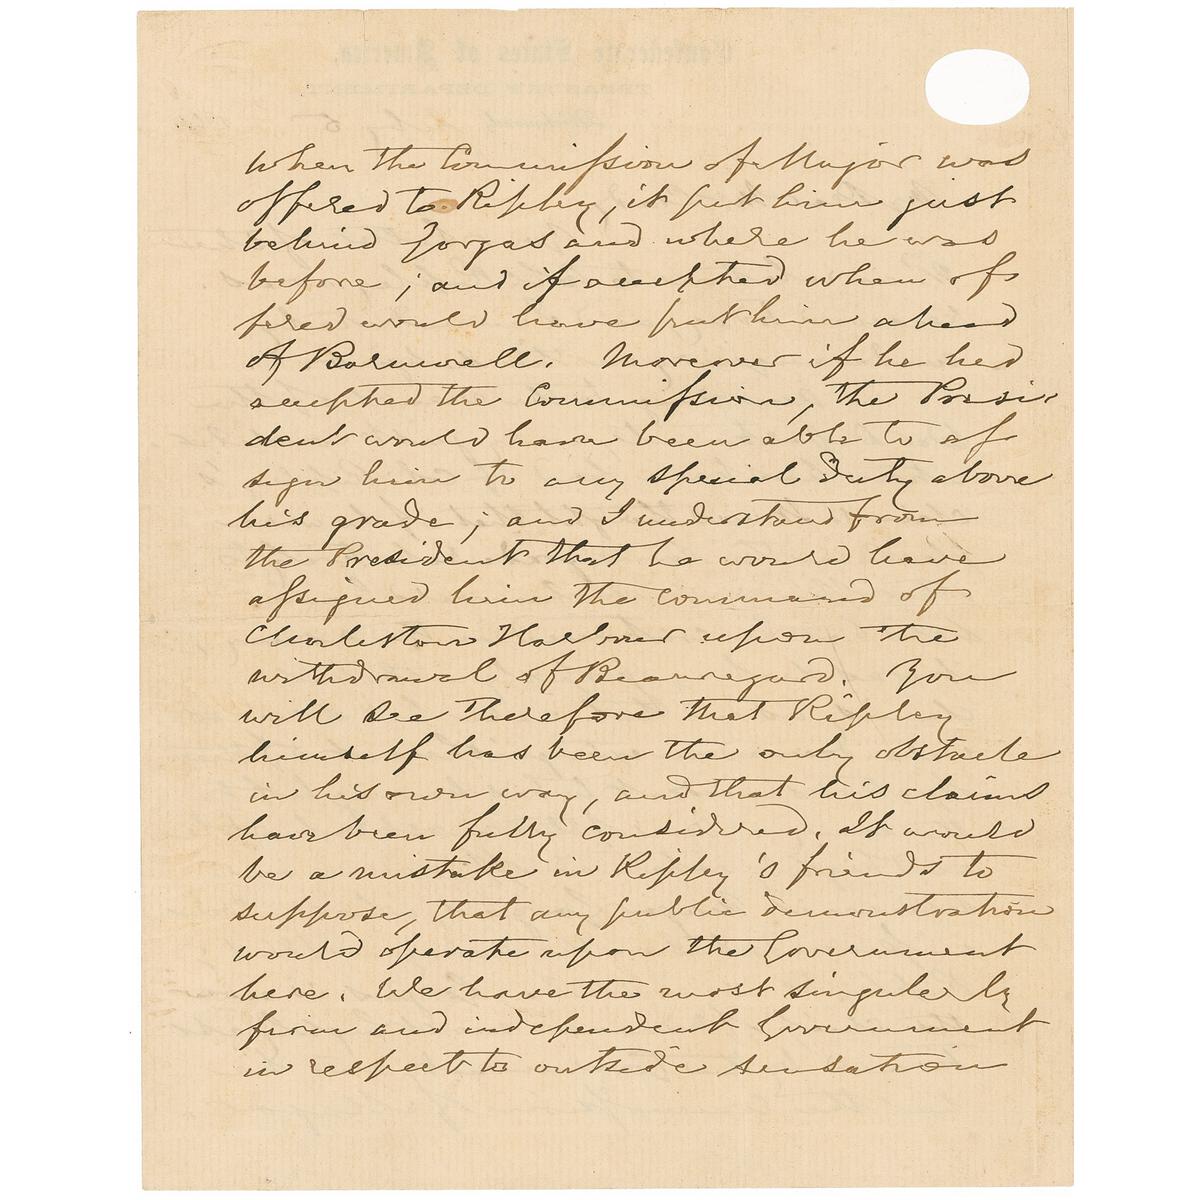 when the Commission of Major was
offered to Ripley, it put him just
behind Gorgas and where he was
before; and if accepted when of
fered would have put him ahead
of Barnwell. Moreover if he had
accepted the Commission, the Presi-
dent would have been able to as
sign him to any special duty above
his grade; and I understand from
the President that he would have
assigned him the command of
Charleston Harbour upon the
withdrawal of Beauregard. You
will see therefore that Ripley
himself has been the only obstacle
in his own way, and that his claims
have been fully considered. It would
be a mistake in Ripley's friends to
suppose, that any public demonstration
would operate upon the Government
here. We have the most singularly
firm and independent Government
in respect to outside sensation